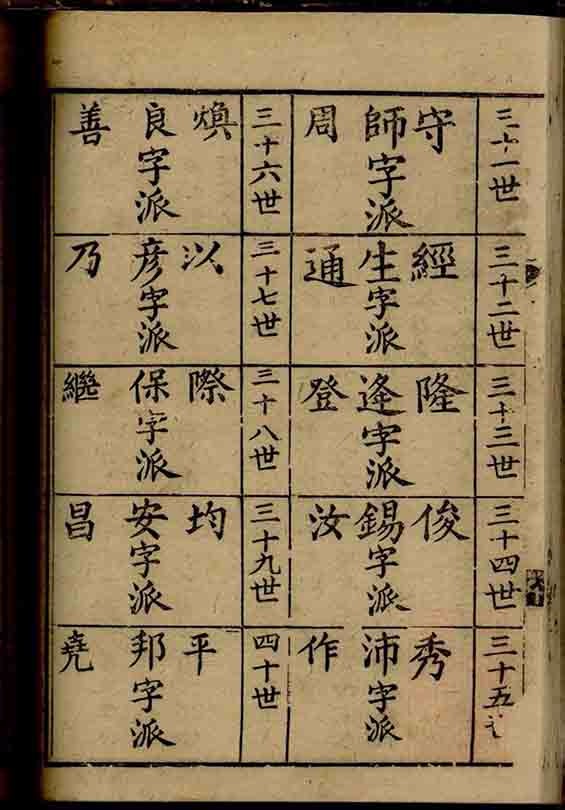 三十一世
守
師字派
周
三十二世
經
生字派
通
三十三世
隆
逢字派
登
三十四世
俊
錫字派
汝
三十五
秀
沛字派
作
三十六世
煥
良字派
善
三十七世
以
彦字派
乃
三十八世
際
保字派
繼
三十九世
均
安字派
昌
四十世
平
邦字派
堯